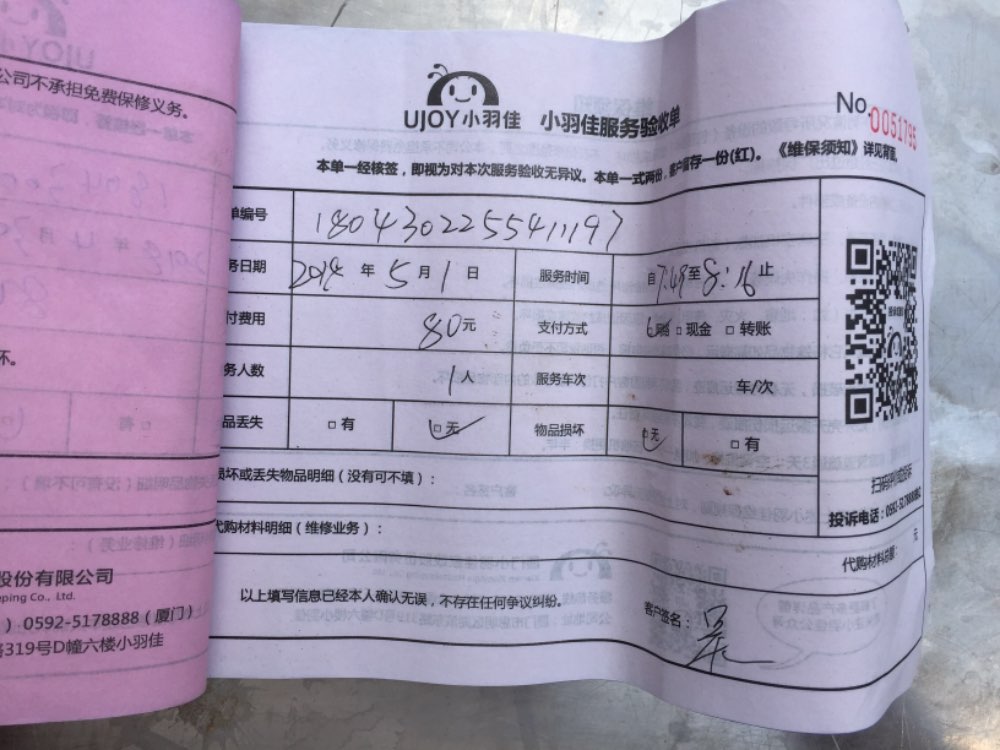 公司不承担免费保修义务。
坏。
股份有限公司
ping Co., Ltd.
0592-5178888（厦门）
路319号D幢六楼小羽佳
UJOY小羽佳 小羽佳服务验收单
No. 0051795
本单一经核签，即视为对本次服务验收无异议。本单一式两份，客户留存一份(红)。《维保须知》详见背面。
单编号 1804302255411197
务日期 2018 年 5 月 1 日 服务时间 自 7:49 至 8:16 止
付费用 80 元 支付方式 □现金 □转账
务人数 1人 服务车次 车/次
品丢失 □有 □无 物品损坏 □无 □有
损坏或丢失物品明细（没有可不填）：
代购材料明细（维修业务）：
投诉电话：0592-5178888
代购材料总额： 元
以上填写信息已经本人确认无误，不存在任何争议纠纷。
客户签名：